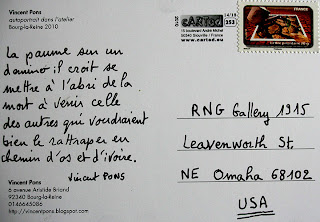 Vincent Pons
autoportrait dans l'atelier
Bourg-la-Reine 2010
La paume sur un
domino; il croit se
mettre à l'abri de la
mort à venir celle
des autres qui voudraient
bien le rattraper en
chemin d'os et d'ivoire.
Vincent PONS
Vincent Pons
6 avenue Aristide Briand
92340 Bourg-la-Reine
0146645086
http://vincentpons.blogspot.com
2010
cartod
14/15
353
15 boulevard André Michel
www.cartod.eu
FRANCE
RNG Gallery 1915
Leavenworth St,
NE Omaha 68102
USA